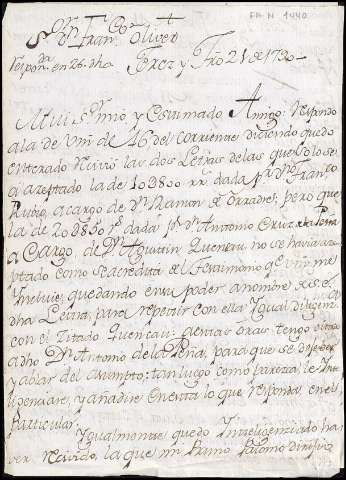 Sor. Dn. Franco. Oliver
FA N 1440
respondda. en 26. dha
Jerez y Año 21 de 1730
Mui Sr. mio y estimado Amigo: respondo
a la de Vm. de 16 del corriente diciendo quedo
enterado recivio las dos Letras de las que solo se
a azeptado la de 103800 rr. dada pr. Dn. Franco.
Rubio, a cargo de Dn. Ramon de pero que
la de 203850 rs. dada pr. Dn. Antonio Cruz de la Peña
a Cargo, de Dn. Agustin Queneau no se havia azep
ptado como se acredita el Testimonio qe. Vm. me
Yncluie, quedando en su poder a nombre
dha Letra, para repetir con ella Igual diligena.
con el Citado Quencau: a estas oras tengo
a dho Dn. Antonio de la Peña, para que se
y ablar del asumpto: tan luego como parezca le Yn
ligenciare, y añadire en esta lo que responda en el
Particular.
Igualmente quedo Ynteligenciado ha
ver recivido, la que mi Primo Palomo